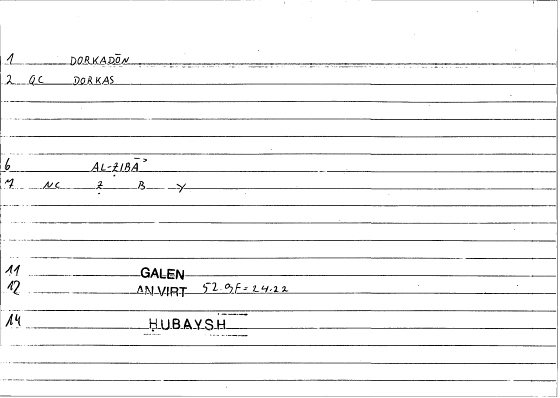 1 DORKADŌN
2 GC DORKAS
6 AL-ẒIBĀʾ
7 NC Ẓ B Y
11 GALEN
12 AN.VIRT 52.9F=24.22
14 ḤUBAYSH